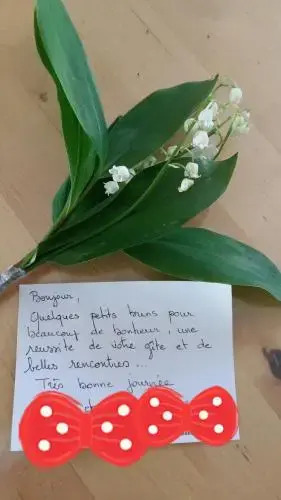 Bonjour,
Quelques petits brins pour
beaucoup de bonheur, une
réussite de votre gîte et de
belles rencontres...
Très bonne journée
et